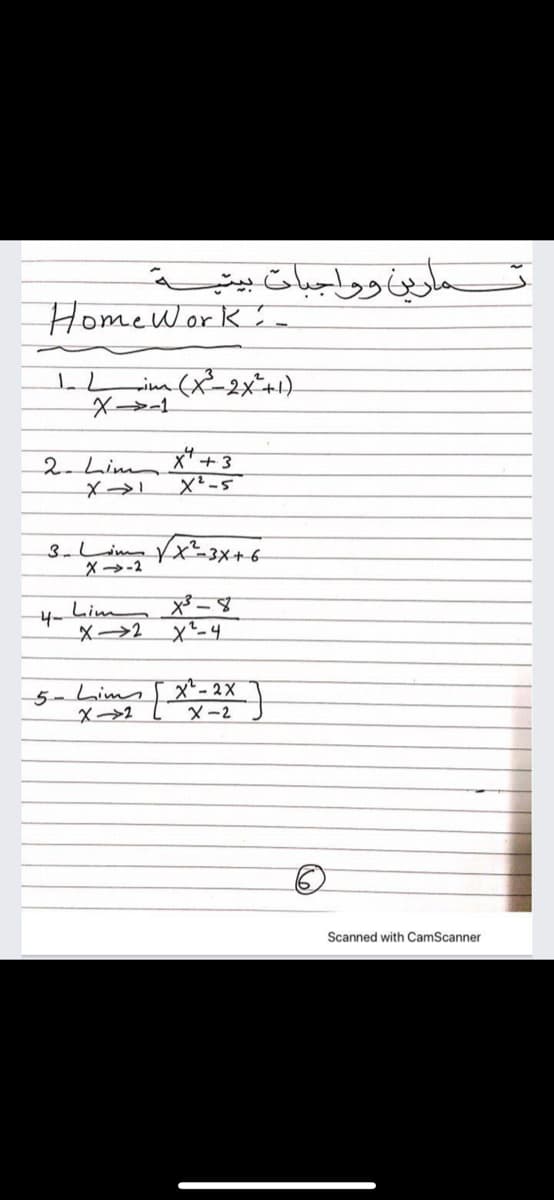 تمارين وواجبات بيتية
HomeWork :-
1- Lim (x³-2x²+1)
x→-1
2- Lim x⁴+3
x→1 x²-5
3- Lim √x²-3x+6
x→-2
4- Lim x³-8
x→2 x²-4
5- Lim [ x²-2x ]
x→2 x-2
6
Scanned with CamScanner